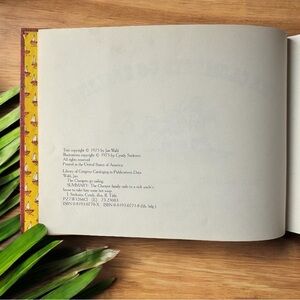 Text copyright © 1975 by Jan Wahl
Illustrations copyright © 1975 by Cyndy Szekeres
All rights reserved
Printed in the United States of America
Library of Congress Cataloging in Publication Data
Wahl, Jan
The Clumpets go sailing.
SUMMARY: The Clumpet family sails to a sick uncle's
house to take him some hot soup.
I. Szekeres, Cyndy, illus. II. Title.